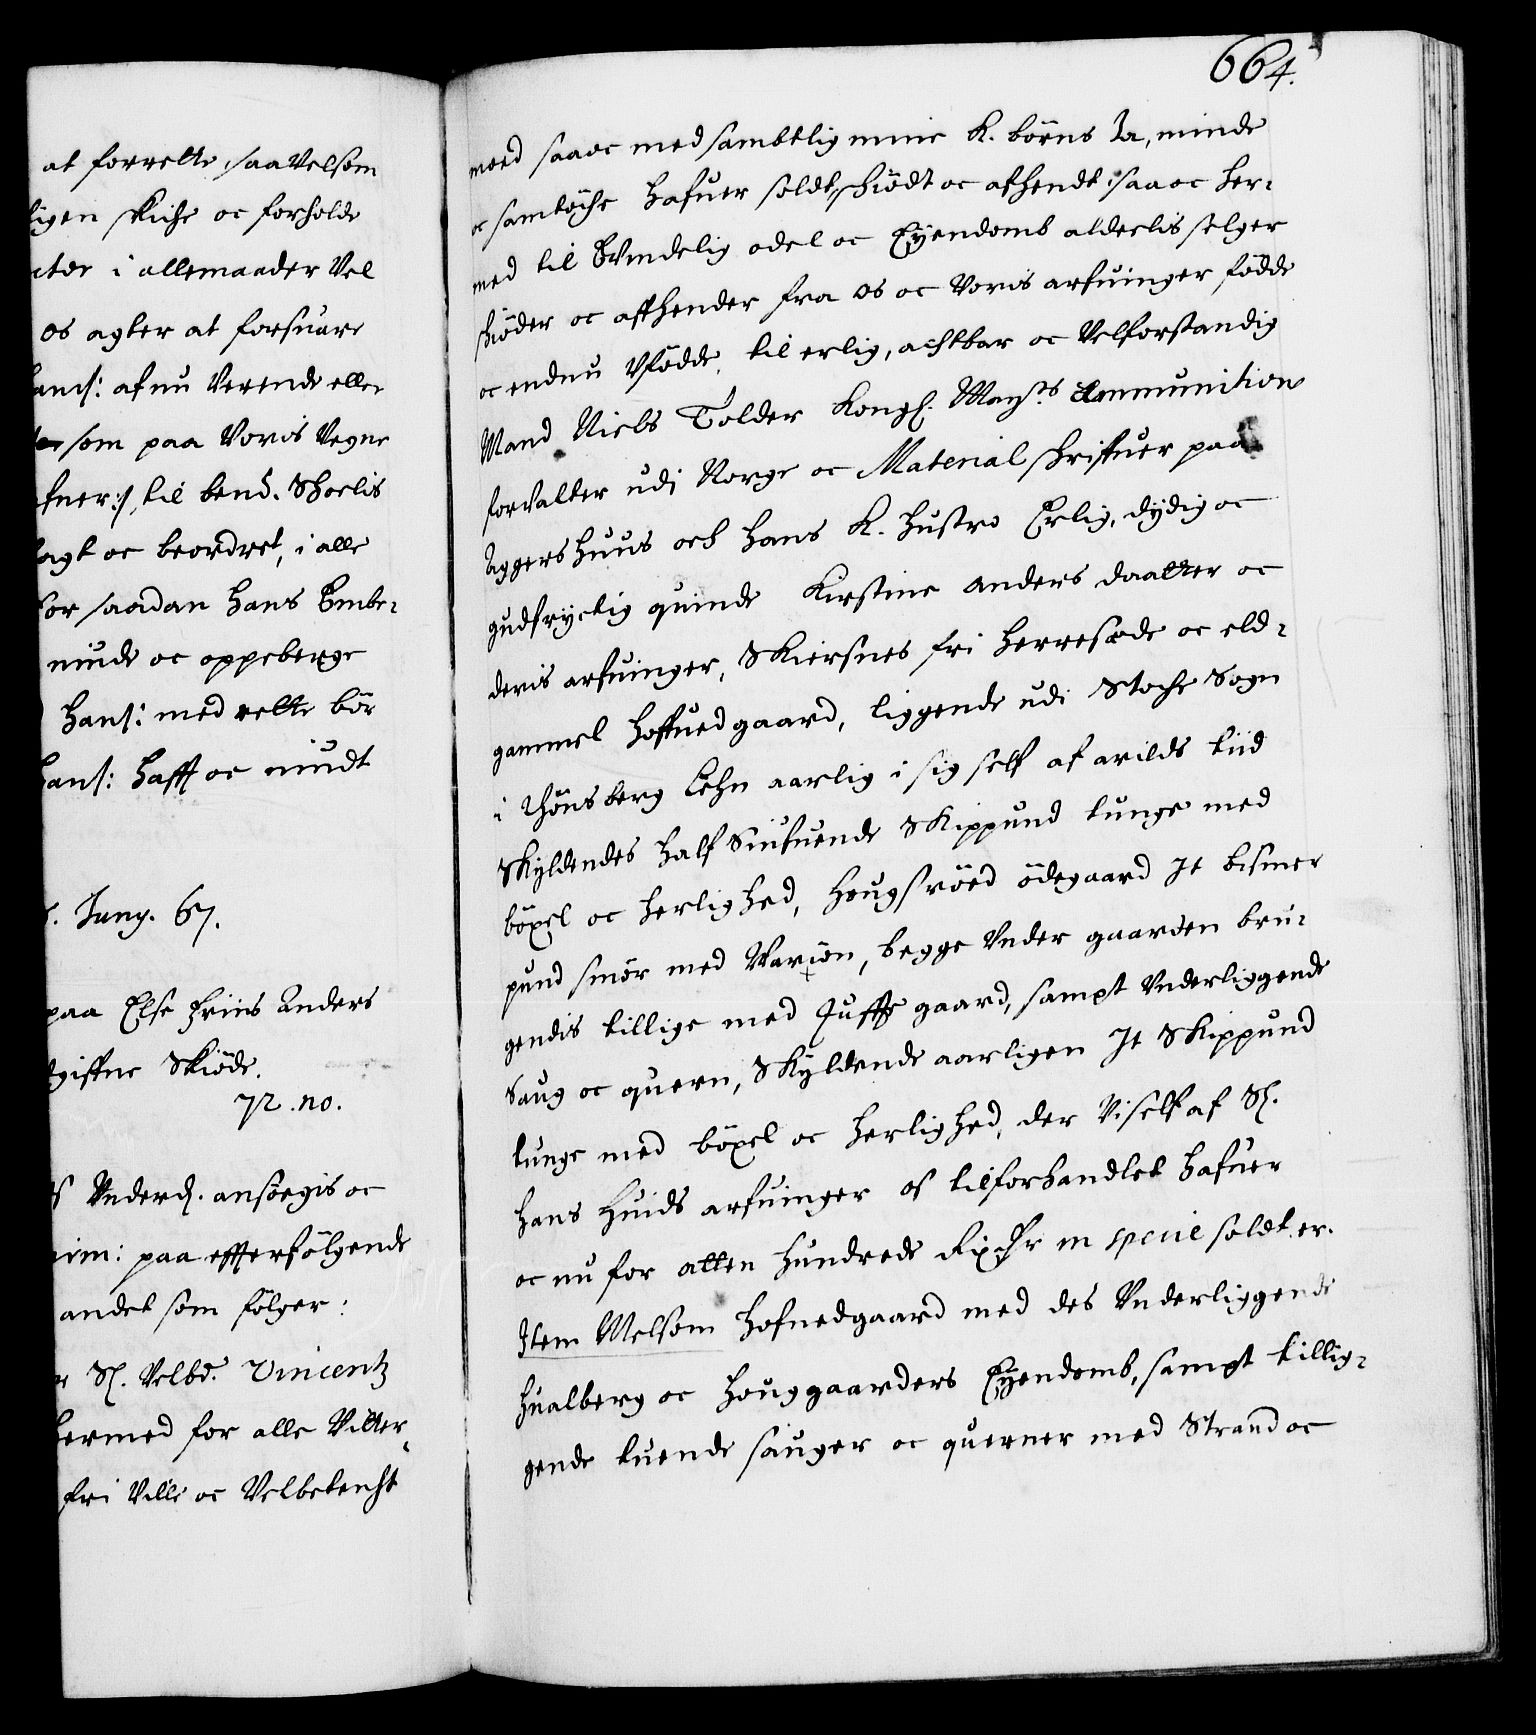 at forrette, saa velsom
ligen skiche oc forholde
i allemaader Vel
os agter at forsuare
hans: af nu Verende eller
som paa Voris Vegne
til bend. Skoelis
lagt oc beordret, i alle
for saadan hans Embe-
niude oc oppeberge
hans: med rette bör
hans: hafft oc niudt
Juny. 67.
paa Else Friis Anders
Skiöde.
72. no.
Vnderd. ansöegis oc
paa efterfølgende
andet som følger:
Sl. Velbd. Vincentz
hermed for alle Vitter-
fri Ville oc Velbetencht
664.
moed saa oc med sambtlig mine K. börns Ja, minde
oc samtöche hafuer soldt, skiödt oc afhendt, saa oc her-
med til Evindelig odel oc Eyendomb alderlis selger
skiöder oc affhender fra os oc Voris arfuinger födde
oc endnu Vfödde, til erlig, achtbar oc Velforstandig
Mand Niels Tolder Kongl. Mayts Ammunition
forvalter udi Norge oc Material schrifuer paa
Aggershuus och hans K. Hustro Erlig, dydig oc
gudfryctig quinde Kirstine Anders daatter oc
deris arfuinger, Skiersnes fri herresæde oc eld-
gammel hoffuedgaard, liggende udi Stoche Sogn
i Thönsberg Lehn aarlig i sig self af arilds tiid
Skyldendes half Siufuende Skippund tunge med
böxel oc herlighed, Hougsröed ödegaard It bismer
pund smör med Wariön, begge Vnder gaarden bru-
gendis tillige med Juffs gaard, sampt Vnderliggende
Saug oc quern, Skyldende aarligen It Skippund
tunge med böxel oc herlighed, der Vi self af Sl.
Hans Huids arfuinger os tilforhandlet hafuer
oc nu for atten hundrede Rixdr in specie soldt er.
Item Melsom hofuedgaard med des Vnderliggende
Hualberg oc Houggaarders Eyendomb, sampt tillig-
gende tuende sauger oc querner med Strand oc